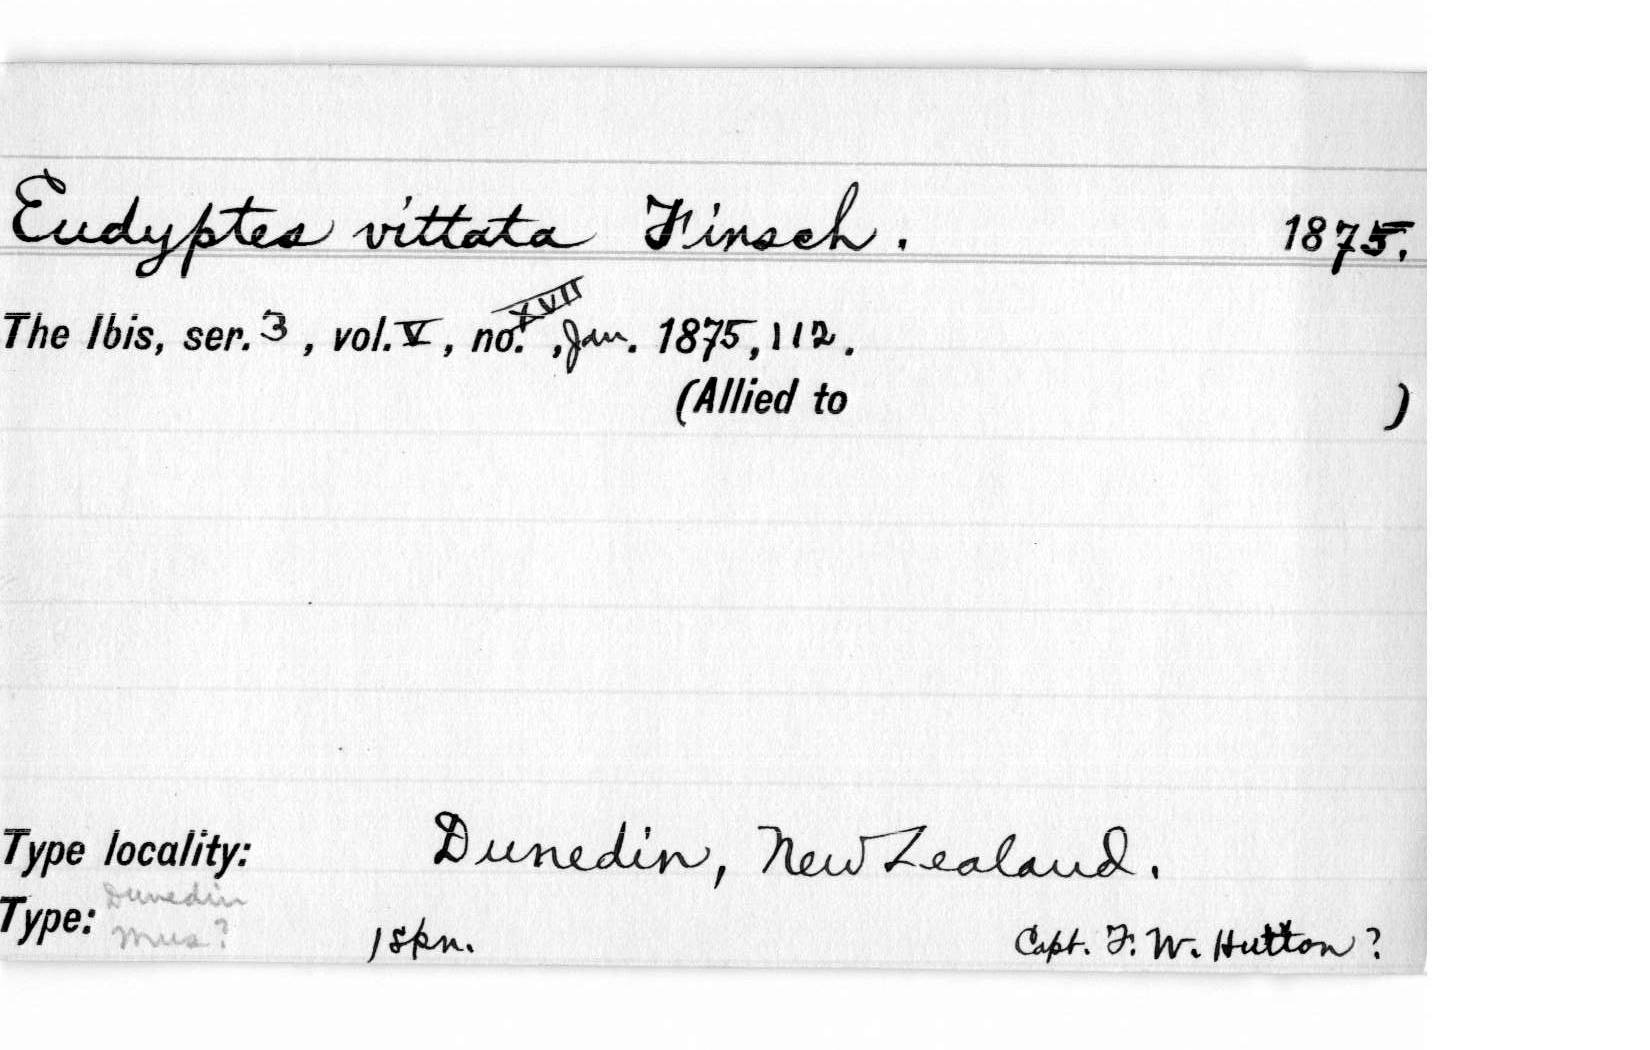 Eudyptes vittata Finsch. 1875.
The Ibis, ser. 3, vol. V, no. XVII, Jan. 1875, 112.
(Allied to )
Type locality: Dunedin, New Zealand.
Type: Dunedin Mus? 1 skn. Capt. F. W. Hutton?